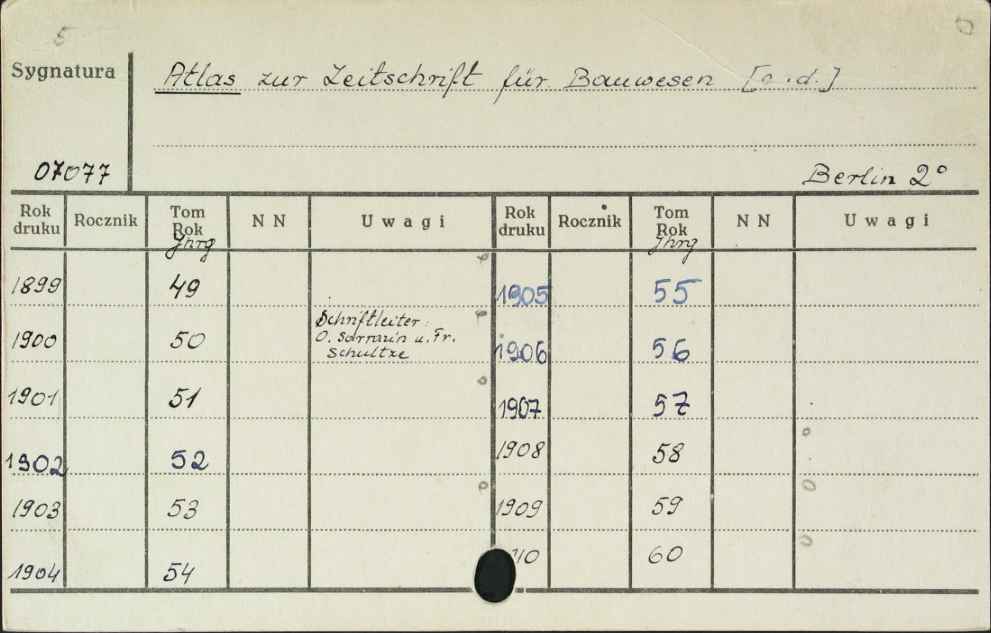 5
Sygnatura
Atlas zur Zeitschrift für Bauwesen
07077
Berlin 2°
Rok druku Rocznik Tom Rok Jhrg N N Uwagi Rok druku Rocznik Tom Rok Jhrg N N Uwagi
1899 49 1905 55
1900 50 Schriftleiter: 1906 56
O. Sarrazin u. Fr.
Schultze
1901 51 1907 57
1902 52 1908 58
1903 53 1909 59
1904 54 60